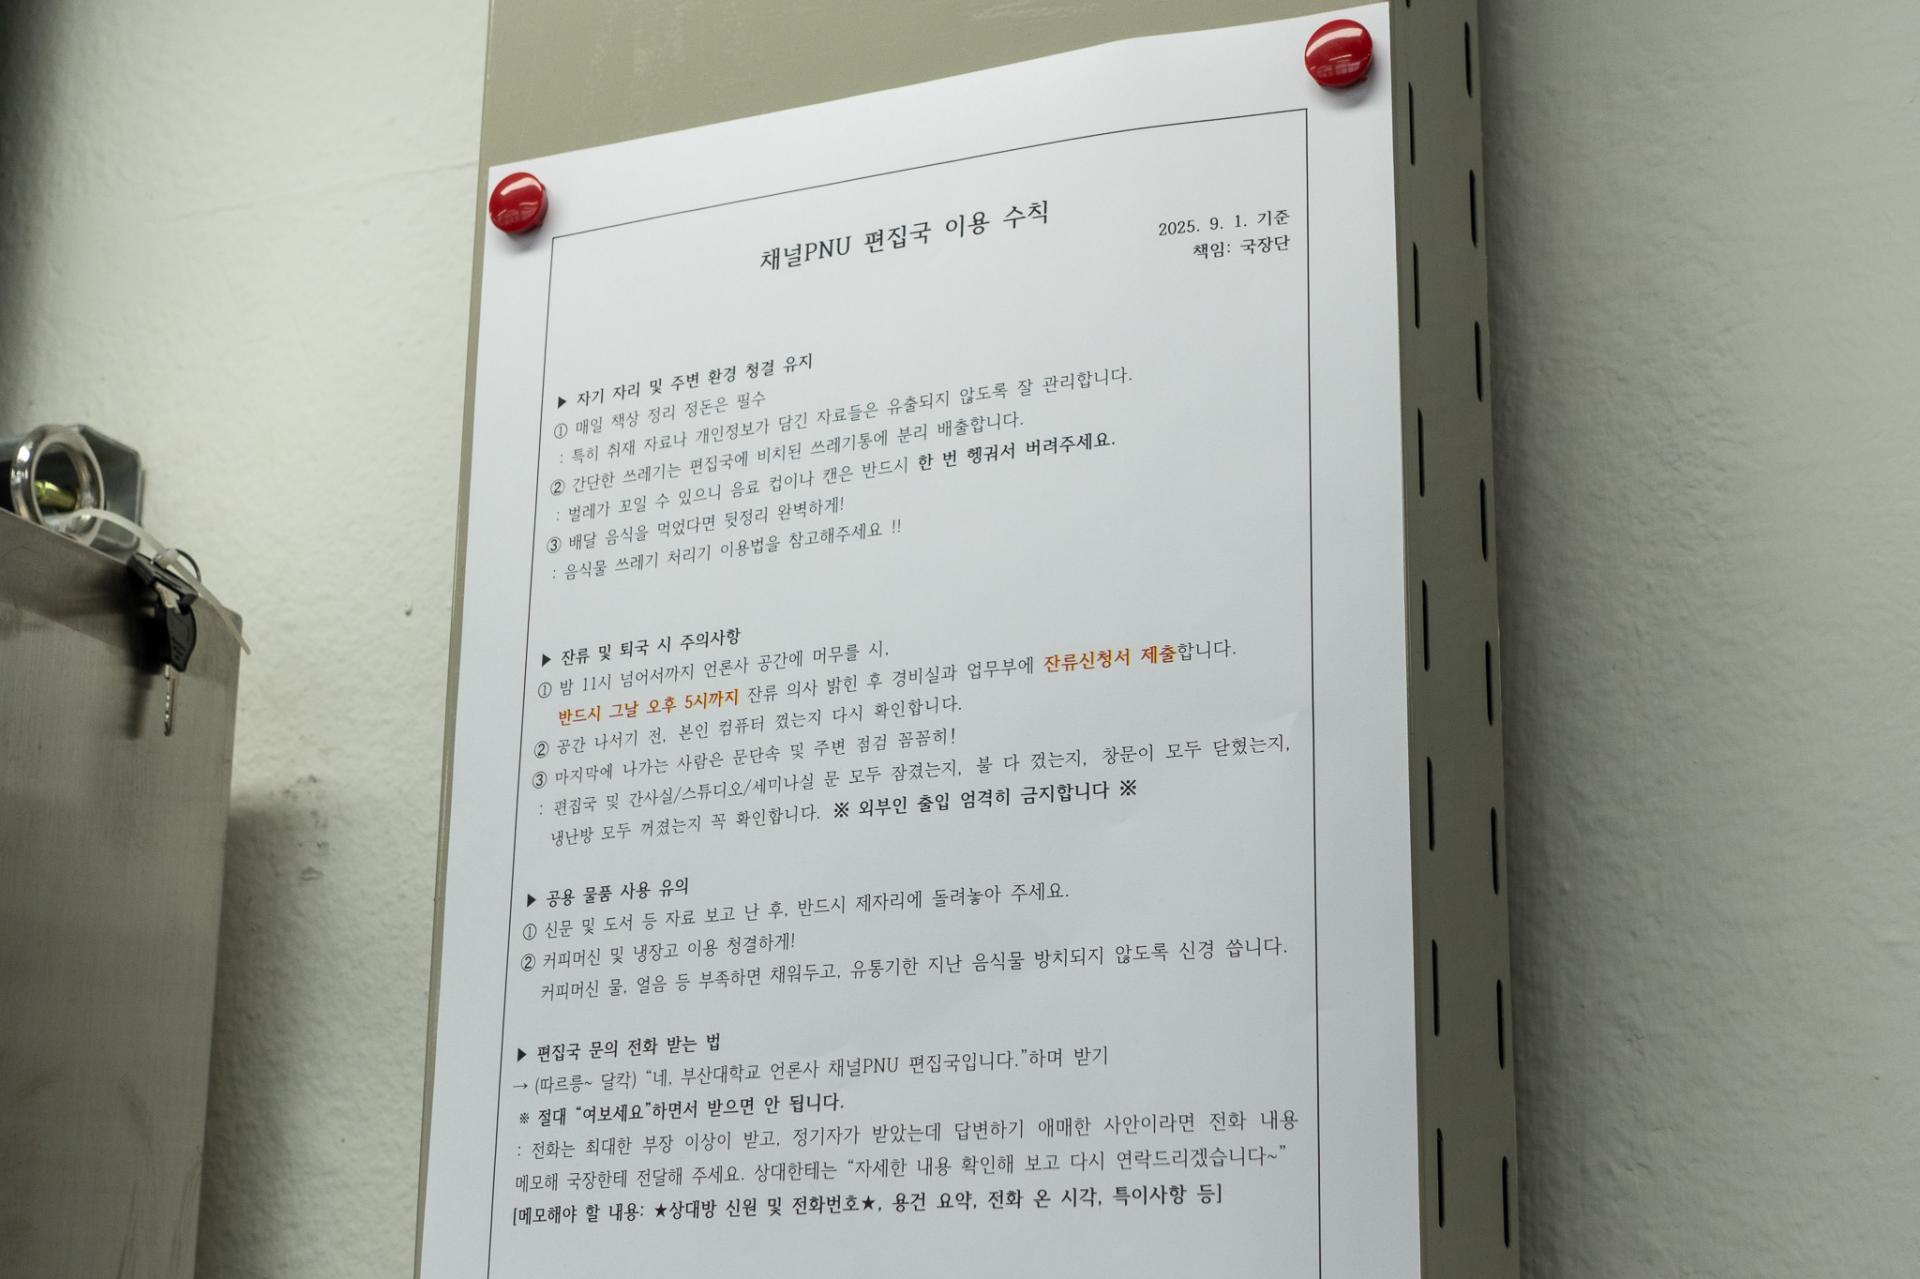 채널PNU 편집국 이용 수칙
2025. 9. 1. 기준
책임: 국장단
▶ 자기 자리 및 주변 환경 청결 유지
① 매일 책상 정리 정돈은 필수
: 특히 취재 자료나 개인정보가 담긴 자료들은 유출되지 않도록 잘 관리합니다.
② 간단한 쓰레기는 편집국에 비치된 쓰레기통에 분리 배출합니다.
: 벌레가 꼬일 수 있으니 음료 컵이나 캔은 반드시 한 번 헹궈서 버려주세요.
③ 배달 음식을 먹었다면 뒷정리 완벽하게!
: 음식물 쓰레기 처리기 이용법을 참고해주세요 !!
▶ 잔류 및 퇴국 시 주의사항
① 밤 11시 넘어서까지 언론사 공간에 머무를 시,
반드시 그날 오후 5시까지 잔류 의사 밝힌 후 경비실과 업무부에 잔류신청서 제출합니다.
② 공간 나서기 전, 본인 컴퓨터 껐는지 다시 확인합니다.
③ 마지막에 나가는 사람은 문단속 및 주변 점검 꼼꼼히!
: 편집국 및 간사실/스튜디오/세미나실 문 모두 잠겼는지, 불 다 껐는지, 창문이 모두 닫혔는지,
냉난방 모두 꺼졌는지 꼭 확인합니다. ※ 외부인 출입 엄격히 금지합니다 ※
▶ 공용 물품 사용 유의
① 신문 및 도서 등 자료 보고 난 후, 반드시 제자리에 돌려놓아 주세요.
② 커피머신 및 냉장고 이용 청결하게!
커피머신 물, 얼음 등 부족하면 채워두고, 유통기한 지난 음식물 방치되지 않도록 신경 씁니다.
▶ 편집국 문의 전화 받는 법
→ (따르릉~ 달칵) “네, 부산대학교 언론사 채널PNU 편집국입니다.”하며 받기
※ 절대 “여보세요”하면서 받으면 안 됩니다.
: 전화는 최대한 부장 이상이 받고, 정기자가 받았는데 답변하기 애매한 사안이라면 전화 내용
메모해 국장한테 전달해 주세요. 상대한테는 “자세한 내용 확인해 보고 다시 연락드리겠습니다~”
[메모해야 할 내용: ★상대방 신원 및 전화번호★, 용건 요약, 전화 온 시각, 특이사항 등]